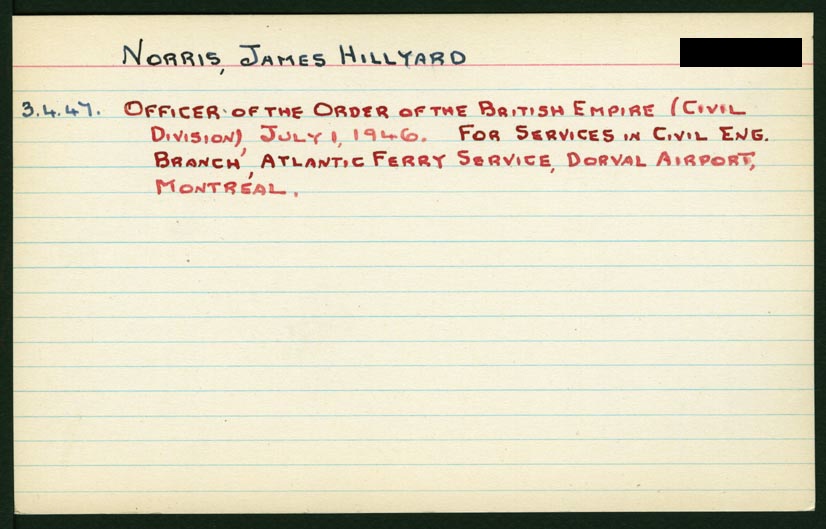 NORRIS, JAMES HILLYARD
3.4.47. OFFICER OF THE ORDER OF THE BRITISH EMPIRE (CIVIL
DIVISION), JULY 1, 1946. FOR SERVICES IN CIVIL ENG.
BRANCH, ATLANTIC FERRY SERVICE, DORVAL AIRPORT,
MONTREAL.